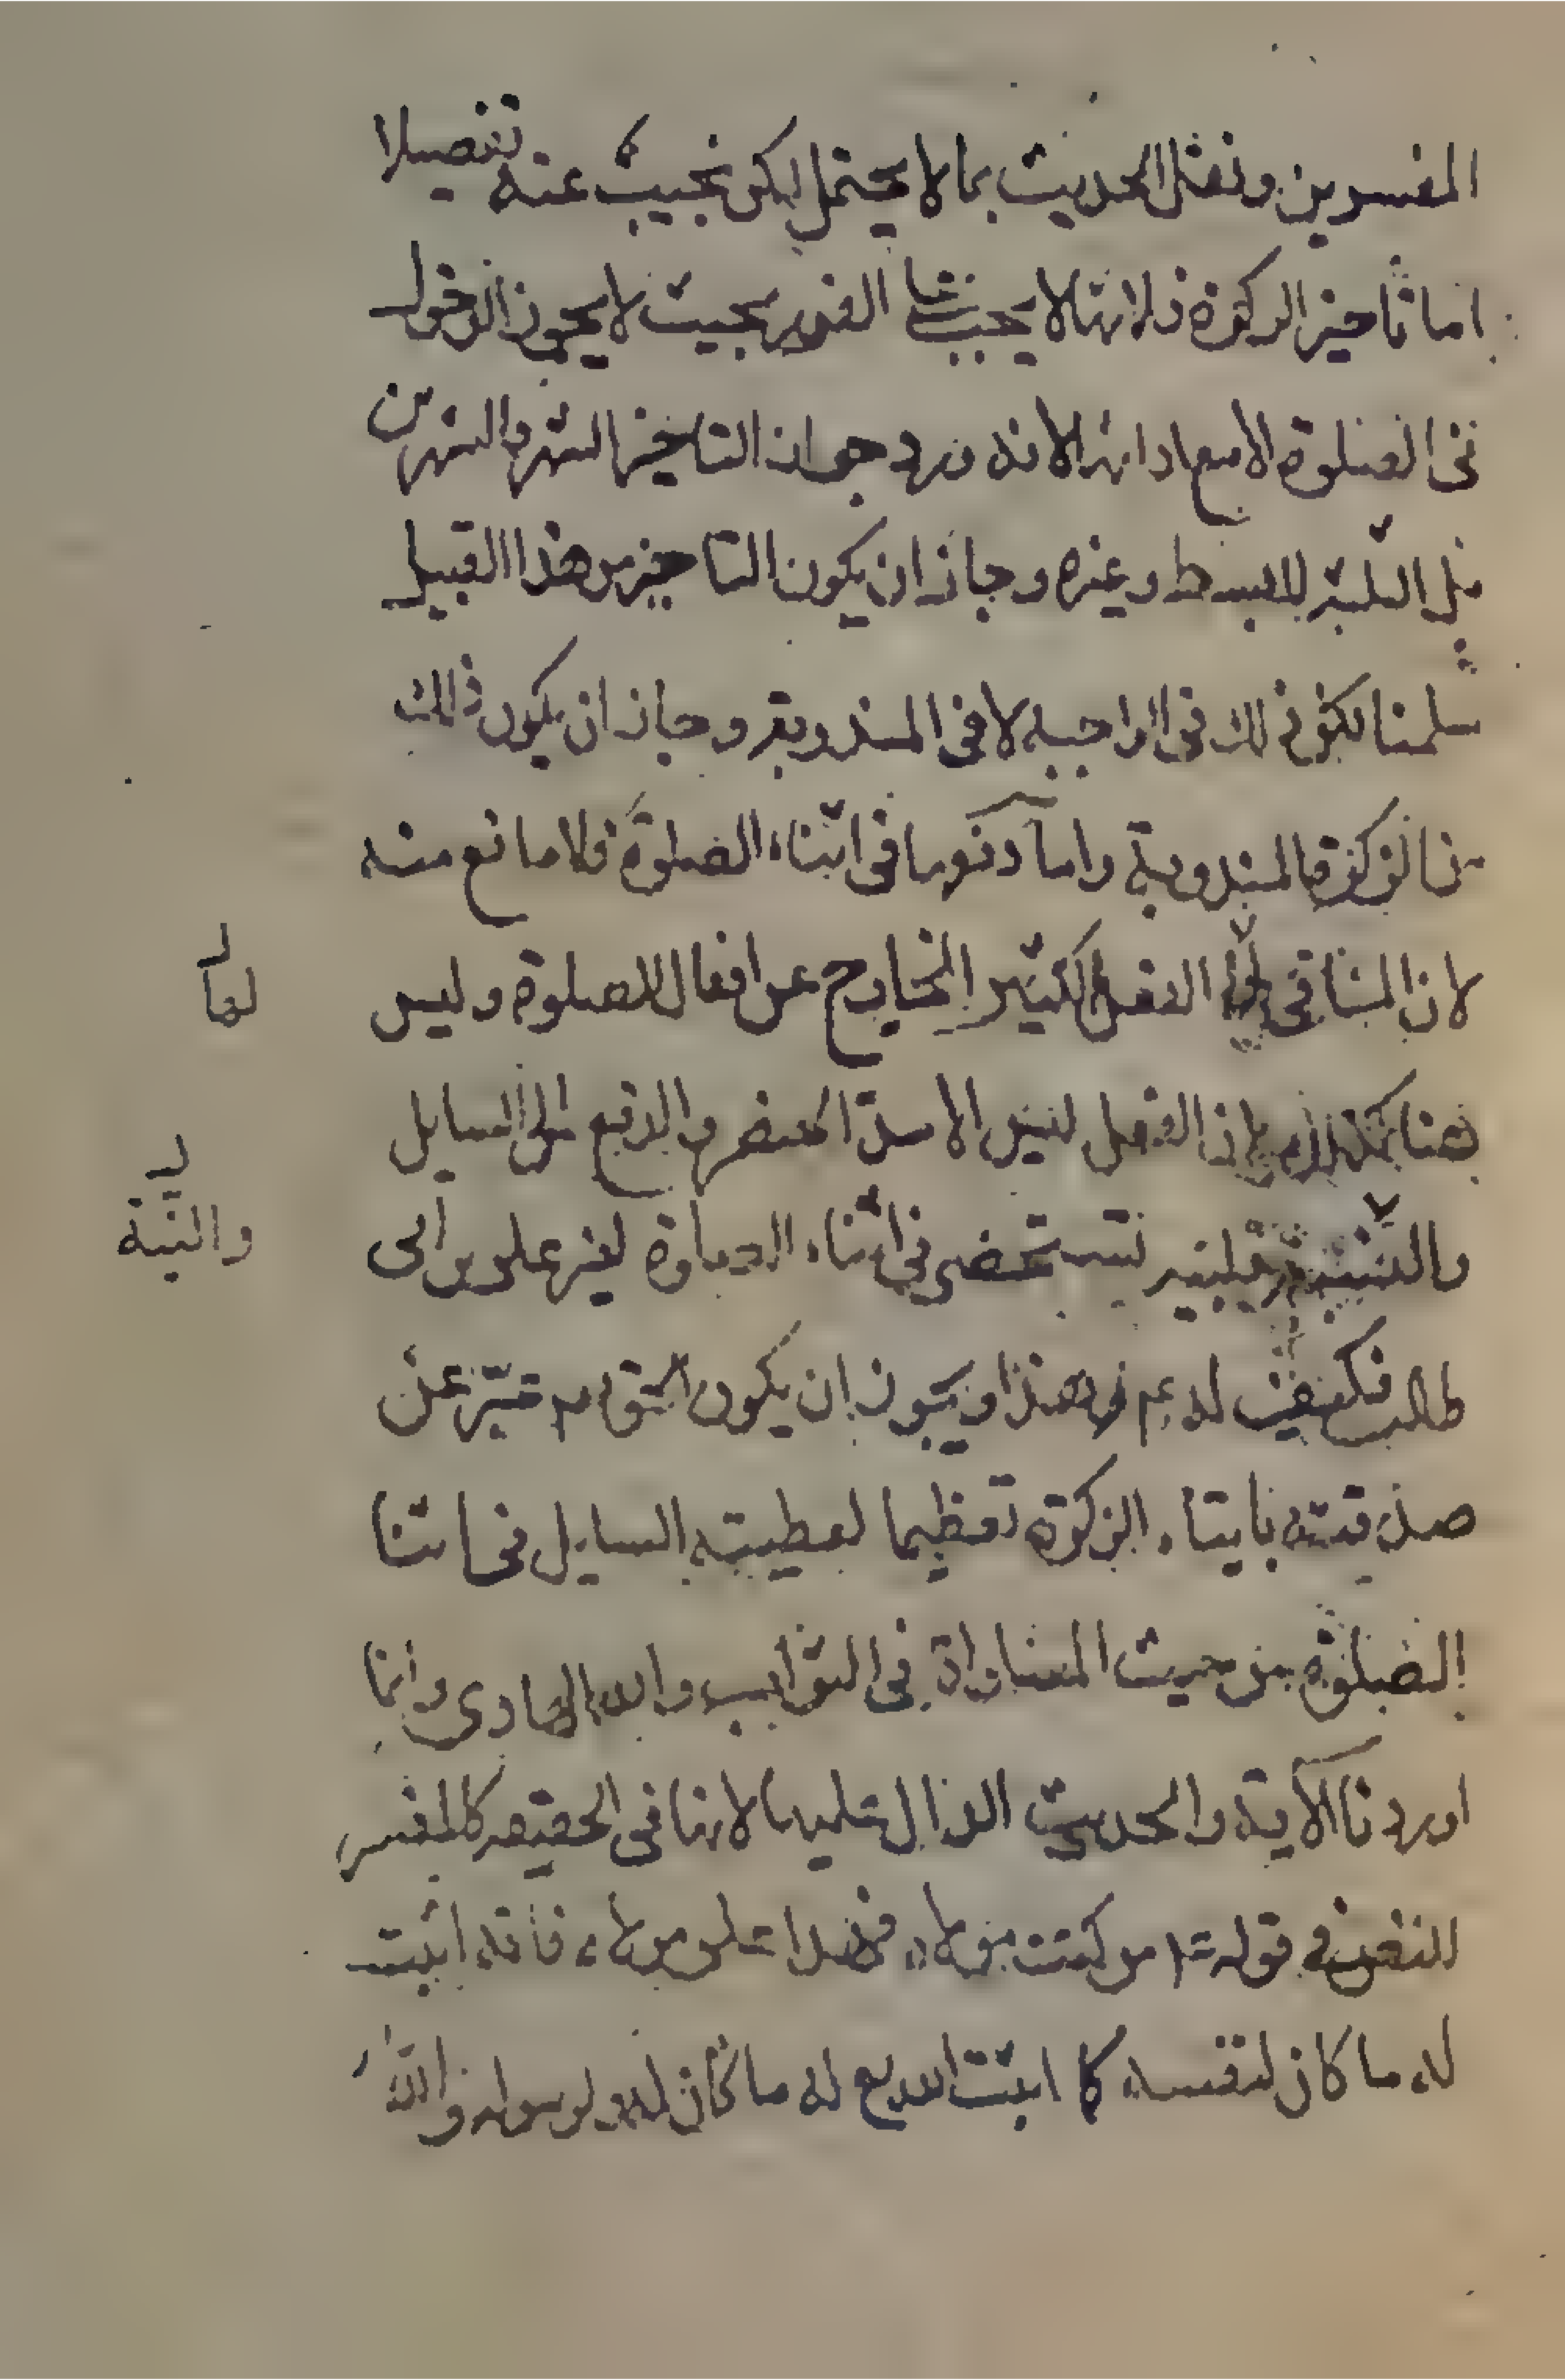 المفسرين ونقل الحديث بما لا يحتمل لكن نجيب عنه تفصيلا
اما تاخير الزكوة فلانها لا يجب الفور بحيث لا يجوز الدخول
فى الصلوة الا بعد ادائها لانه ورد جواز التاخير الشهر والشهرين
بل الثلثة للبسط وغيره وجاز ان يكون التاخير من هذا القبيل
سلمنا لكن ذلك فى الواجبة لا فى المندوبة وجاز ان يكون ذلك
من الزكوة المندوبة واما كونها فى اثناء الصلوة فلا مانع منه
لان المنافى لها الفعل الكثير الخارج عن افعال الصلوة وليس
هنا كذلك اذ الفعل ليس الا الخنصر والدفع الى السايل
والنية قلبية تستحضر فى اثناء الصلوة لغير على بن ابى
طالب فكيف له عم فى هذا ويجوز ان يكون الحق عبر عن
صدقته بايتاء الزكوة تعظيما لعطيته السايل فى اثنا
الصلوة من حيث المساواة فى الثواب والله الهادى وانما
اوردنا الآية والحديث الدال عليها لانها فى الحقيقة كالمفسر
للنص فى قوله من كنت مولاه فهذا على مولاه فانه اثبت
له ما كان لنفسه كما اثبت الله تع له ما كان له ولرسوله والله
لها
والنية